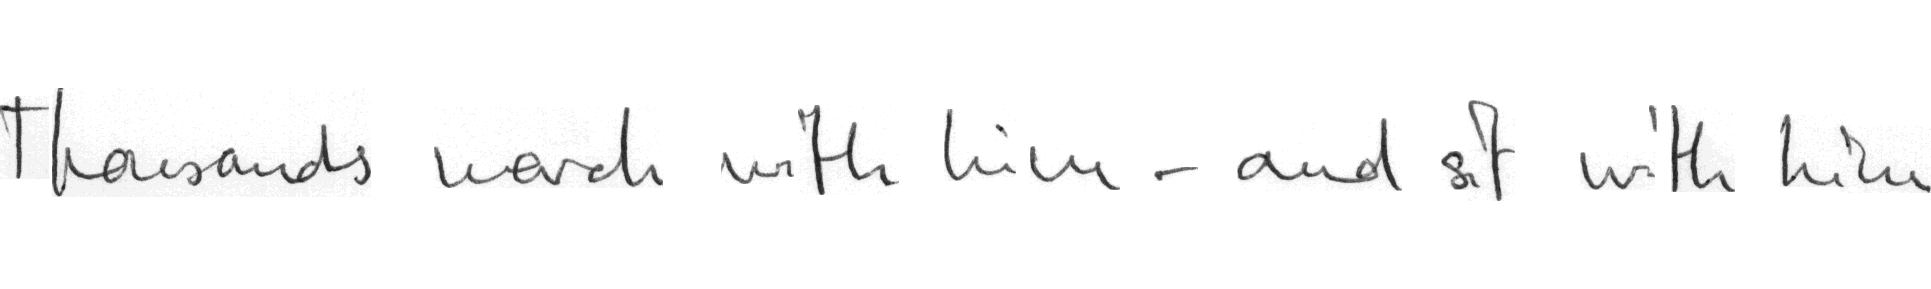 Thousands march with him - and sit with him